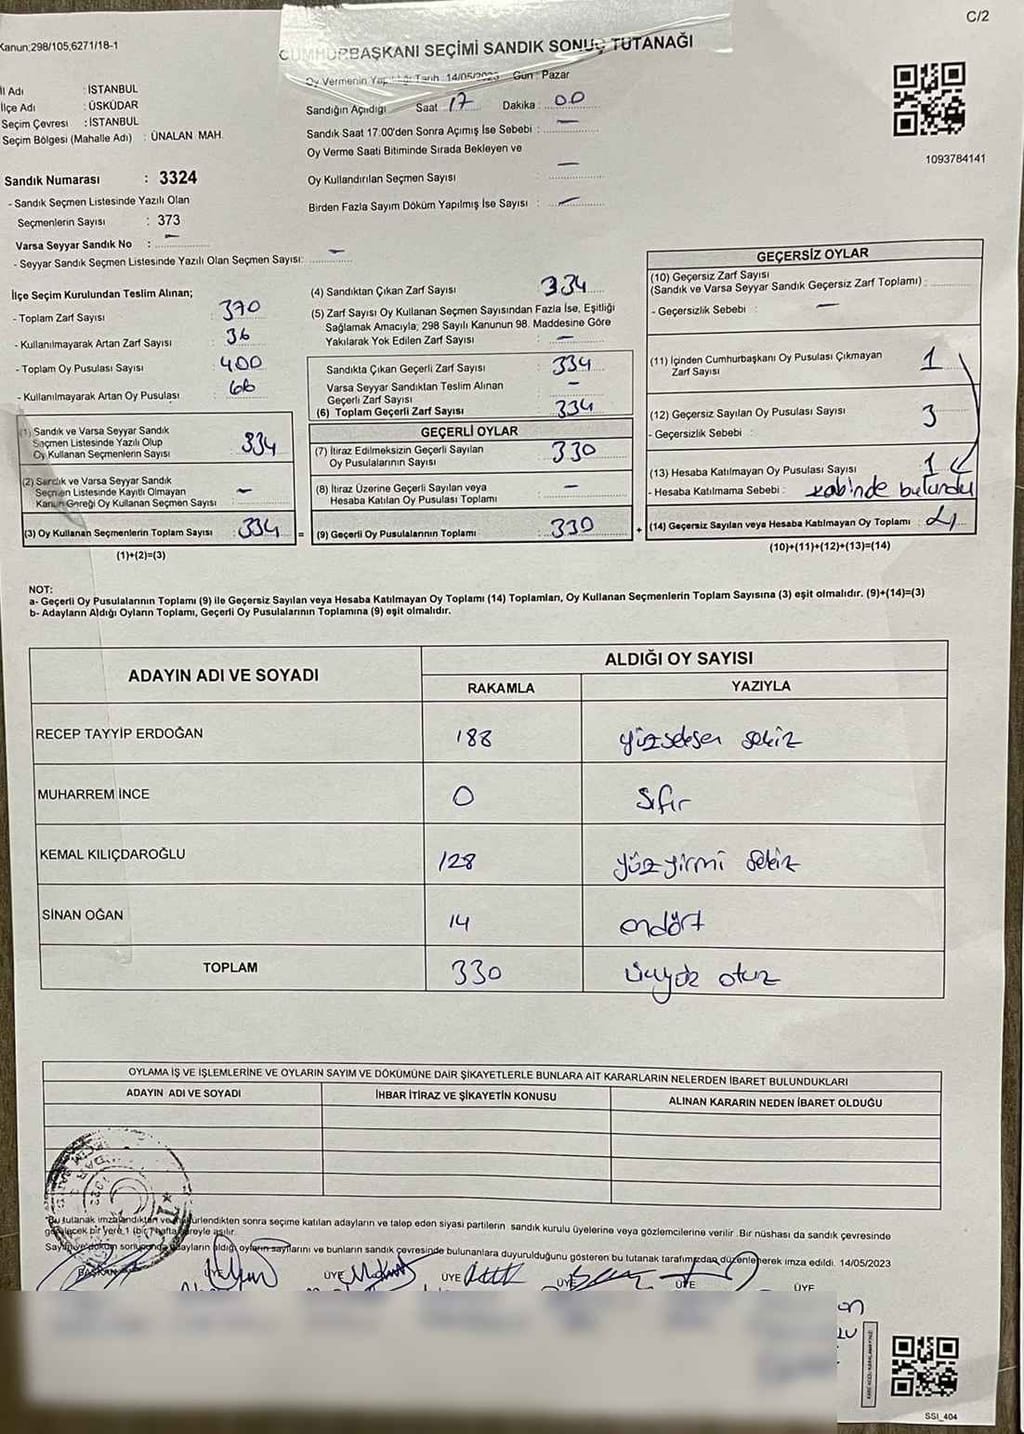 C/2
Kanun;298/105,6271/18-1
CUMHURBAŞKANI SEÇİMİ SANDIK SONUÇ TUTANAĞI
Oy Vermenin Yapıldığı Tarih :14/05/2023 Gün : Pazar
İl Adı : İSTANBUL
İlçe Adı : ÜSKÜDAR
Seçim Çevresi : İSTANBUL
Seçim Bölgesi (Mahalle Adı) : ÜNALAN MAH.
Sandığın Açıldığı Saat 17 Dakika : 00
Sandık Saat 17:00'den Sonra Açımış İse Sebebi : —
Oy Verme Saati Bitiminde Sırada Bekleyen ve
Oy Kullandırılan Seçmen Sayısı —
Birden Fazla Sayım Döküm Yapılmış İse Sayısı : —
1093784141
Sandık Numarası : 3324
- Sandık Seçmen Listesinde Yazılı Olan
Seçmenlerin Sayısı : 373
Varsa Seyyar Sandık No : —
- Seyyar Sandık Seçmen Listesinde Yazılı Olan Seçmen Sayısı: —
İlçe Seçim Kurulundan Teslim Alınan;
- Toplam Zarf Sayısı : 370
- Kullanılmayarak Artan Zarf Sayısı : 36
- Toplam Oy Pusulası Sayısı : 400
- Kullanılmayarak Artan Oy Pusulası : 66
(1) Sandık ve Varsa Seyyar Sandık
Seçmen Listesinde Yazılı Olup
Oy Kullanan Seçmenlerin Sayısı : 334
(2) Sandık ve Varsa Seyyar Sandık
Seçmen Listesinde Kayıtlı Olmayan
Kanun Gereği Oy Kullanan Seçmen Sayısı : —
(3) Oy Kullanan Seçmenlerin Toplam Sayısı : 334 =
(1)+(2)=(3)
(4) Sandıktan Çıkan Zarf Sayısı : 334
(5) Zarf Sayısı Oy Kullanan Seçmen Sayısından Fazla İse, Eşitliği
Sağlamak Amacıyla; 298 Sayılı Kanunun 98. Maddesine Göre
Yakılarak Yok Edilen Zarf Sayısı : —
Sandıkta Çıkan Geçerli Zarf Sayısı : 334
Varsa Seyyar Sandıktan Teslim Alınan
Geçerli Zarf Sayısı : —
(6) Toplam Geçerli Zarf Sayısı : 334
GEÇERLİ OYLAR
(7) İtiraz Edilmeksizin Geçerli Sayılan
Oy Pusulalarının Sayısı : 330
(8) İtiraz Üzerine Geçerli Sayılan veya
Hesaba Katılan Oy Pusulası Toplamı : —
(9) Geçerli Oy Pusulalarının Toplamı : 330 +
GEÇERSİZ OYLAR
(10) Geçersiz Zarf Sayısı
(Sandık ve Varsa Seyyar Sandık Geçersiz Zarf Toplamı) :
- Geçersizlik Sebebi : —
(11) İçinden Cumhurbaşkanı Oy Pusulası Çıkmayan
Zarf Sayısı : 1
(12) Geçersiz Sayılan Oy Pusulası Sayısı : 3
- Geçersizlik Sebebi :
(13) Hesaba Katılmayan Oy Pusulası Sayısı : 1
- Hesaba Katılmama Sebebi : kabinde bulundu
(14) Geçersiz Sayılan veya Hesaba Katılmayan Oy Toplamı : 4
(10)+(11)+(12)+(13)=(14)
NOT:
a- Geçerli Oy Pusulalarının Toplamı (9) ile Geçersiz Sayılan veya Hesaba Katılmayan Oy Toplamı (14) Toplamları, Oy Kullanan Seçmenlerin Toplam Sayısına (3) eşit olmalıdır. (9)+(14)=(3)
b- Adayların Aldığı Oyların Toplamı, Geçerli Oy Pusulalarının Toplamına (9) eşit olmalıdır.
ADAYIN ADI VE SOYADI
ALDIĞI OY SAYISI
RAKAMLA YAZIYLA
RECEP TAYYİP ERDOĞAN 188 yüzseksen sekiz
MUHARREM İNCE 0 sıfır
KEMAL KILIÇDAROĞLU 128 yüzyirmi sekiz
SİNAN OĞAN 14 ondört
TOPLAM 330 üçyüz otuz
OYLAMA İŞ VE İŞLEMLERİNE VE OYLARIN SAYIM VE DÖKÜMÜNE DAİR ŞİKAYETLERLE BUNLARA AİT KARARLARIN NELERDEN İBARET BULUNDUKLARI
ADAYIN ADI VE SOYADI İHBAR İTİRAZ VE ŞİKAYETİN KONUSU ALINAN KARARIN NEDEN İBARET OLDUĞU
Bu tutanak imzalandıktan ve mühürlendikten sonra seçime katılan adayların ve talep eden siyasi partilerin sandık kurulu üyelerine veya gözlemcilerine verilir. Bir nüshası da sandık çevresinde
görülecek bir yere 1 (bir) hafta süreyle asılır.
Sayım ve döküm sonucunda adayların aldığı oyların sayılarını ve bunların sandık çevresinde bulunanlara duyurulduğunu gösteren bu tutanak tarafımızdan düzenlenerek imza edildi. 14/05/2023
BAŞKAN ÜYE ÜYE ÜYE ÜYE ÜYE ÜYE
SSI_404